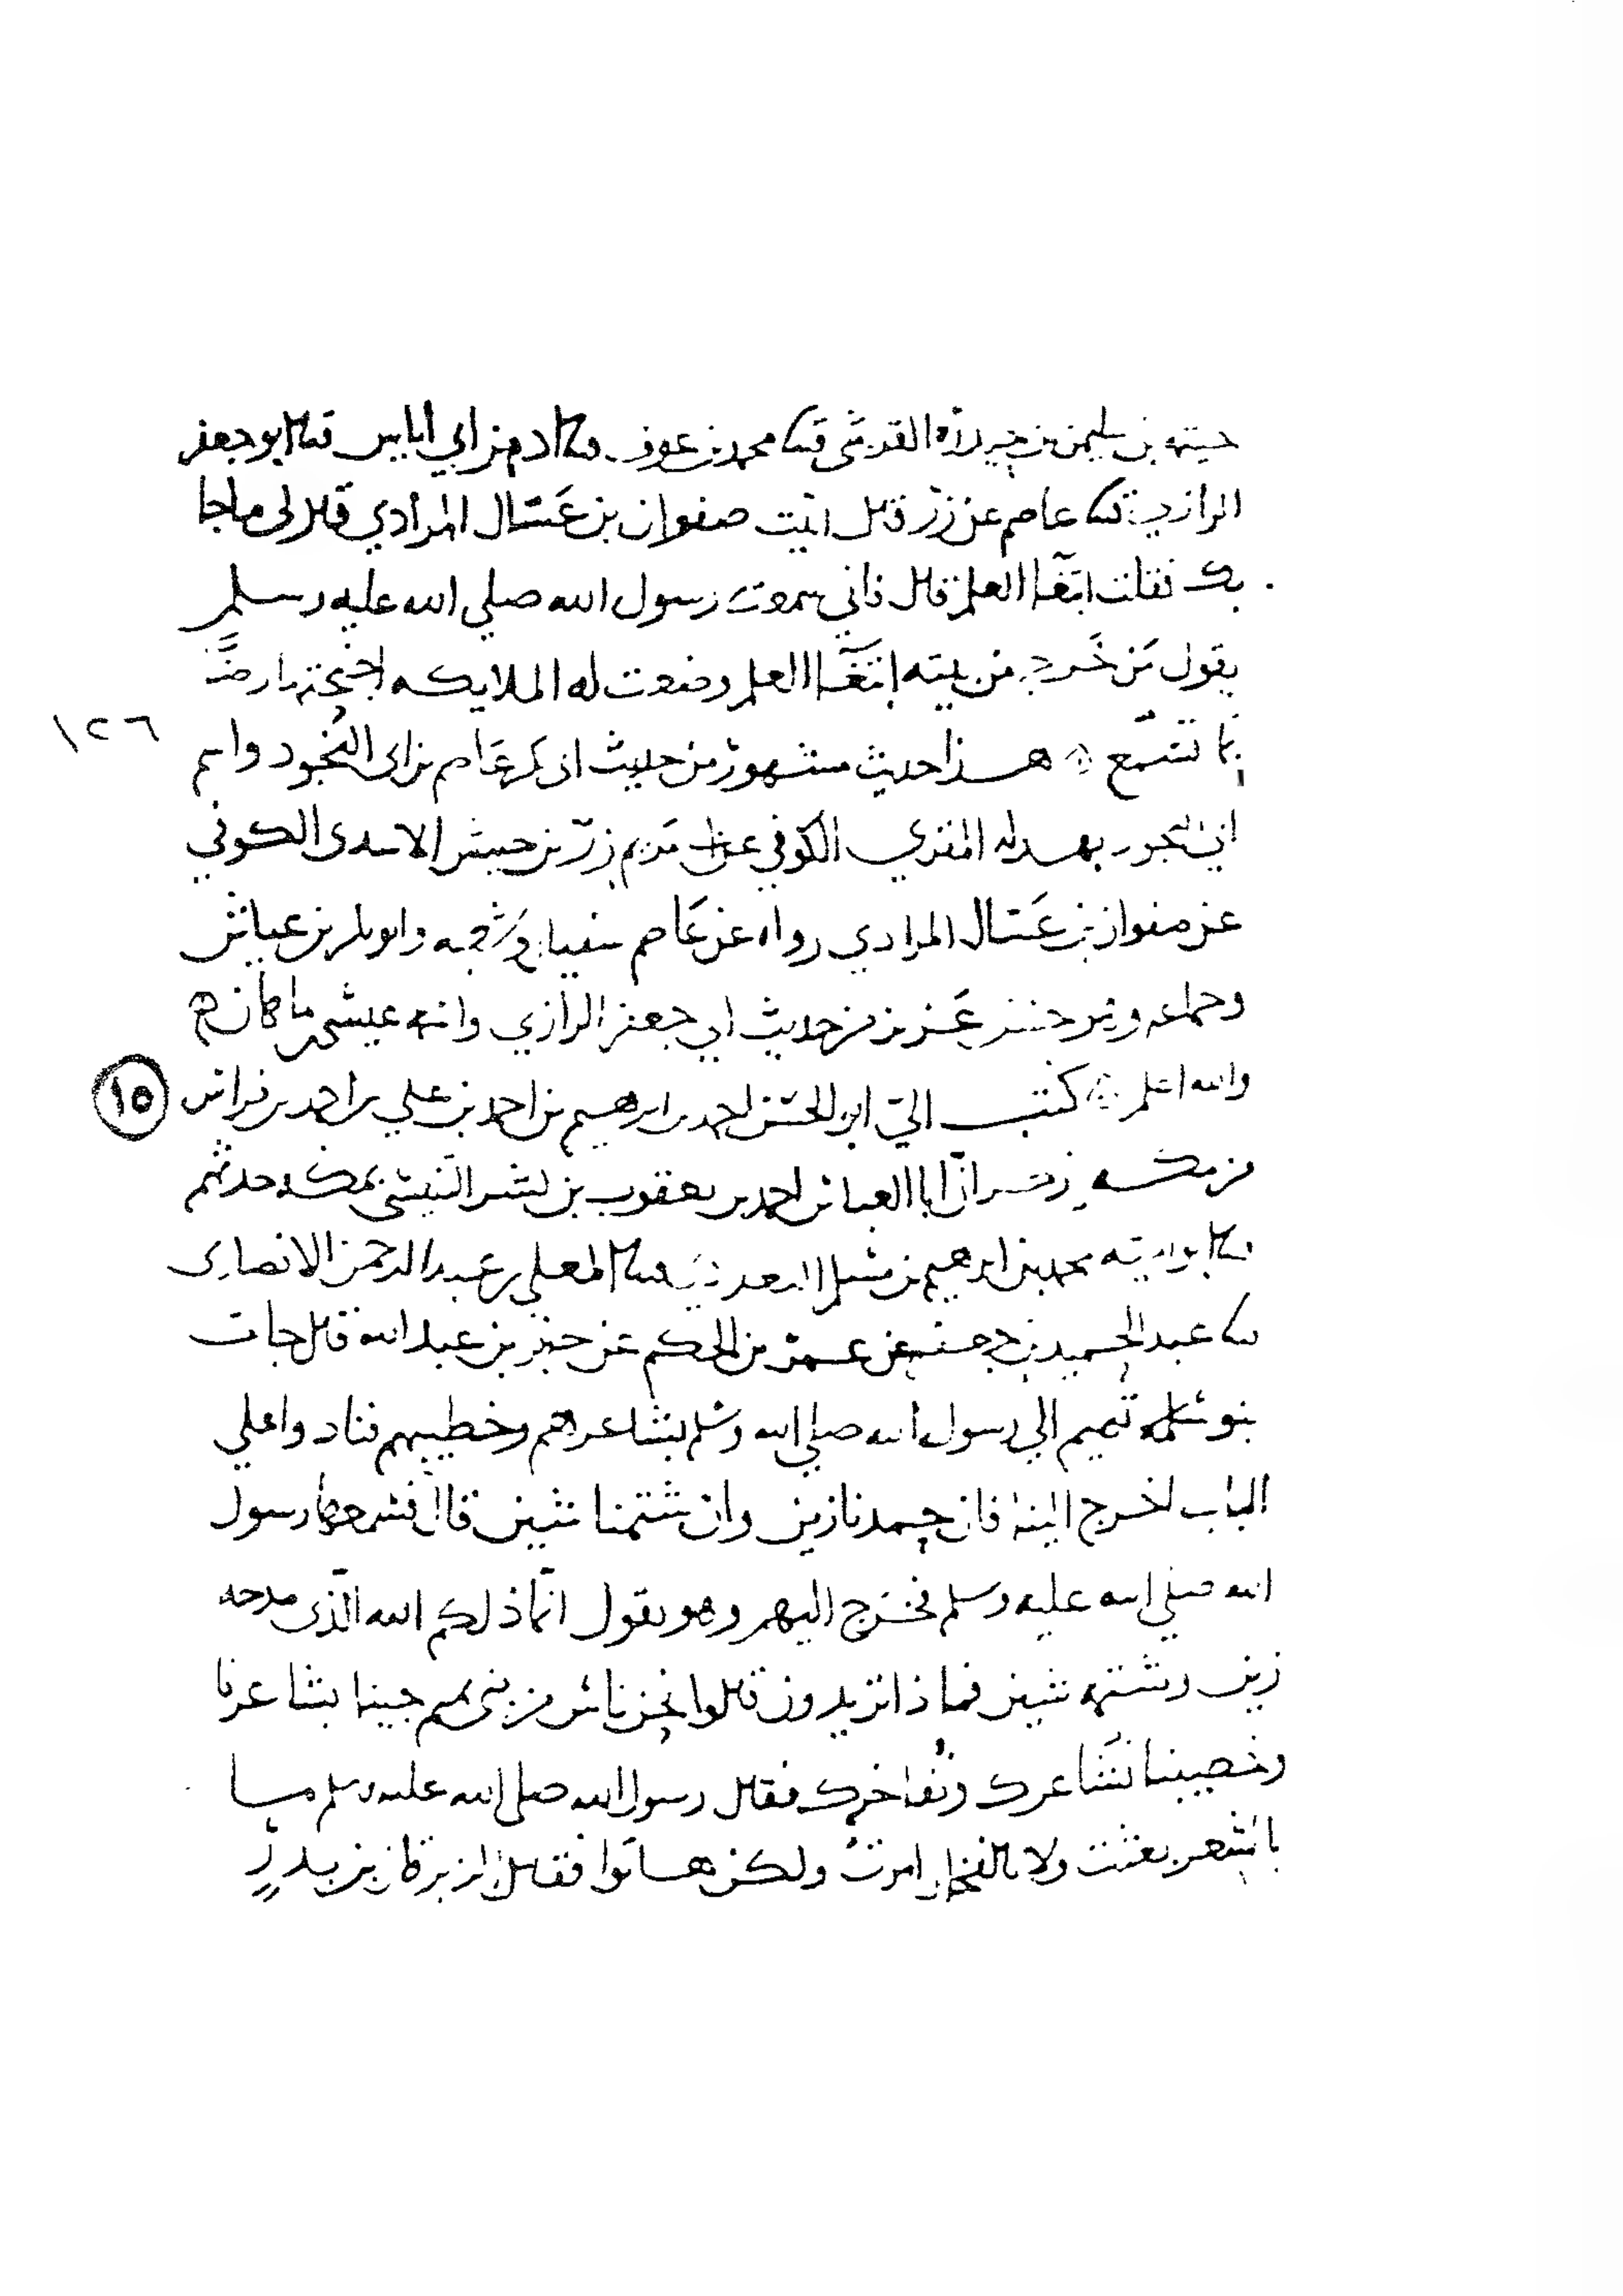 بن سليمن بن حيدره القرشي قثنا محمد بن عوف قثنا ادم بن ابي اياس قثنا ابو جعفر
الرازي قثنا عاصم عن زر قال اتيت صفوان بن عَسّال المرادي فقال لي ما جا
بك فقلت ابتغآ العلم قال فاني سمعت رسول الله صلي الله عليه وسلم
يقول مَن خَرج من بيته ابتغآ العلم وضعت له الملايكه اجنحتها رضًا
١٢٦
بما تسمع هذا حديث مشهور من حديث ابي بكر عَاصم بن ابي النُجود واسم
ابي النجود بهدله المقري الكوفي عن ابي مَريم زرّ بن حبيش الاسدى الكوفي
عن صفوان بن عَسّال المرادي رواه عن عَاصم سفيان وشعبه وابو بكر بن عياش
وجماعه وهو حسن عَزيز من حديث ابي جعفر الرازي واسمه عيسى بن ماهان
والله اعلم كتب اليّ ابو الحسن احمد بن ابرهيم بن احمد بن علي بن احمد بن فراس
١٥
من مكه انّ ابا العباس احمد بن يعقوب بن بشر بمكه حدثهم
قثنا ابو اميه محمد بن ابرهيم بن مسلم قثنا المعلي بن عبد الرحمن الانصاري
ثنا عبد الحميد بن جعفر عن عمر بن الحكم عن جابر بن عبد الله قال جات
بنو تميم الي رسول الله صلي الله وسلم بشاعرهم وخطيبهم فنادوا علي
الباب اخرج الينا فان حمدنا زين وان شتمنا شين قال فسمعها رسول
الله صلي الله عليه وسلم فخرج اليهم وهو يقول انّما ذلكم الله الّذي مدحه
زين وشتمه شين فماذا تريدون قالوا نحن ناس من بني تميم جينا بشاعرنا
وخطيبنا نُشاعرك ونُفاخرك فقال رسول الله صلى الله عليه وسلم ما
بالشعر بعثت ولا بالفخار امرتُ ولكن هاتوا فقال الزبرقان بن بدرٍ